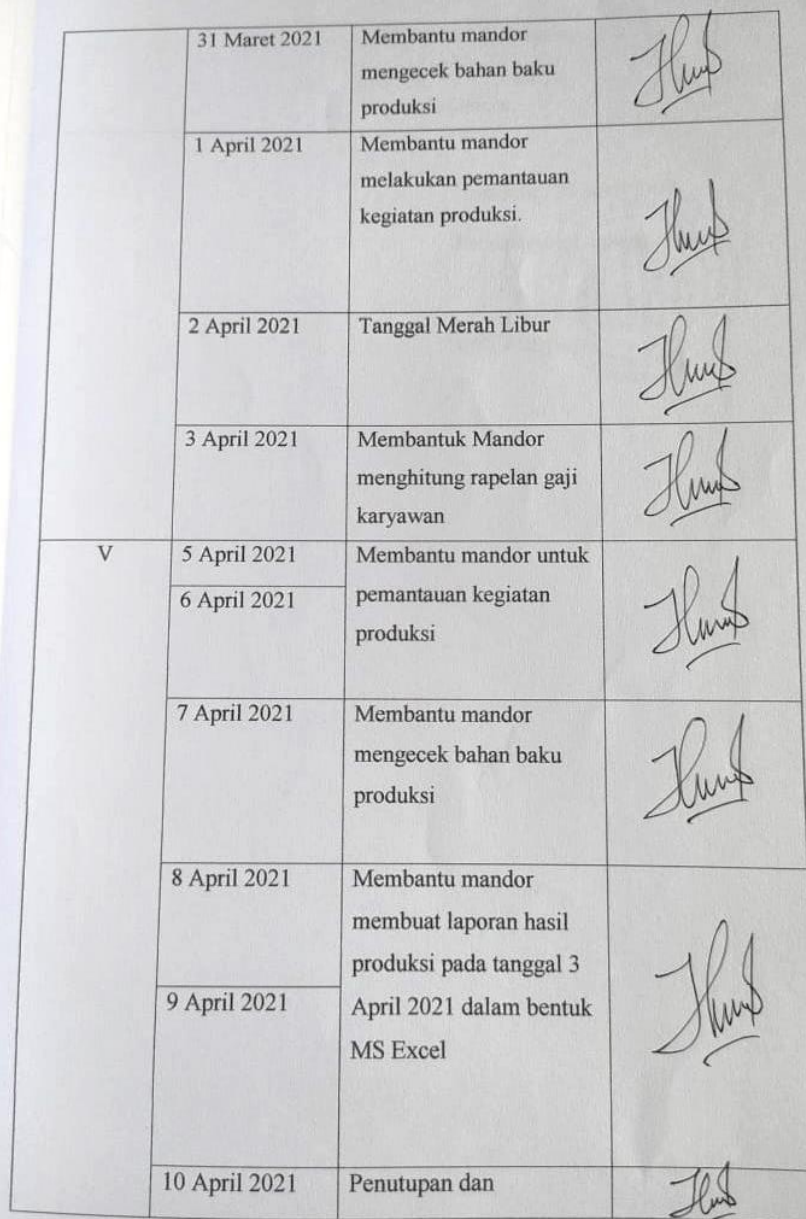 31 Maret 2021
Membantu mandor
mengecek bahan baku
produksi
1 April 2021
Membantu mandor
melakukan pemantauan
kegiatan produksi.
2 April 2021
Tanggal Merah Libur
3 April 2021
Membantuk Mandor
menghitung rapelan gaji
karyawan
V
5 April 2021
6 April 2021
Membantu mandor untuk
pemantauan kegiatan
produksi
7 April 2021
Membantu mandor
mengecek bahan baku
produksi
8 April 2021
9 April 2021
Membantu mandor
membuat laporan hasil
produksi pada tanggal 3
April 2021 dalam bentuk
MS Excel
10 April 2021
Penutupan dan